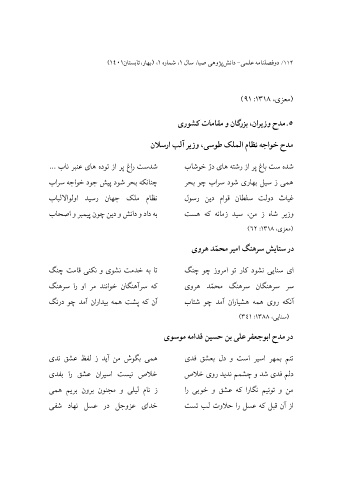 ۱۱۲/ دوفصلنامه علمی- دانش‌پژوهی صبا/ سال ۱، شماره ۱، (بهار، تابستان۱۴۰۱)
(معزی، ۱۳۱۸: ۹۱)
۵. مدح وزیران، بزرگان و مقامات کشوری
مدح خواجه نظام الملک طوسی، وزیر آلب ارسلان
شده ست باغ پر از رشته های دژ خوشاب شدست راغ پر از توده های عنبر ناب ...
همی ز سیل بهاری شود سراب چو بحر چنانکه بحر شود پیش جود خواجه سراب
غیاث دولت سلطان قوام دین رسول نظام ملک جهان رسید اولوالالباب
وزیر شاه ز من، سید زمانه که هست به داد و دانش و دین چون پیمبر و اصحاب
(معزی، ۱۳۱۸: ۶۲)
در ستایش سرهنگ امیر محمّد هروی
ای سنایی نشود کار تو امروز چو چنگ تا به خدمت نشوی و نکنی قامت چنگ
سر سرهنگان سرهنگ محمّد هروی که سرآهنگان خوانند مر او را سرهنگ
آنکه روی همه هشیاران آمد چو شتاب آن که پشت همه بیداران آمد چو درنگ
(سنایی، ۱۳۸۸: ۳۴۱)
در مدح ابوجعفر علی بن حسین قدامه موسوی
تنم بمهر اسیر است و دل بعشق فدی همی بگوش من آید ز لفظ عشق ندی
دلم فدی شد و چشمم ندید روی خلاص خلاص نیست اسیران عشق را بفدی
من و توئیم نگارا که عشق و خوبی را ز نام لیلی و مجنون برون بریم همی
از آن قبل که عسل را حلاوت لب تست خدای عزوجل در عسل نهاد شفی